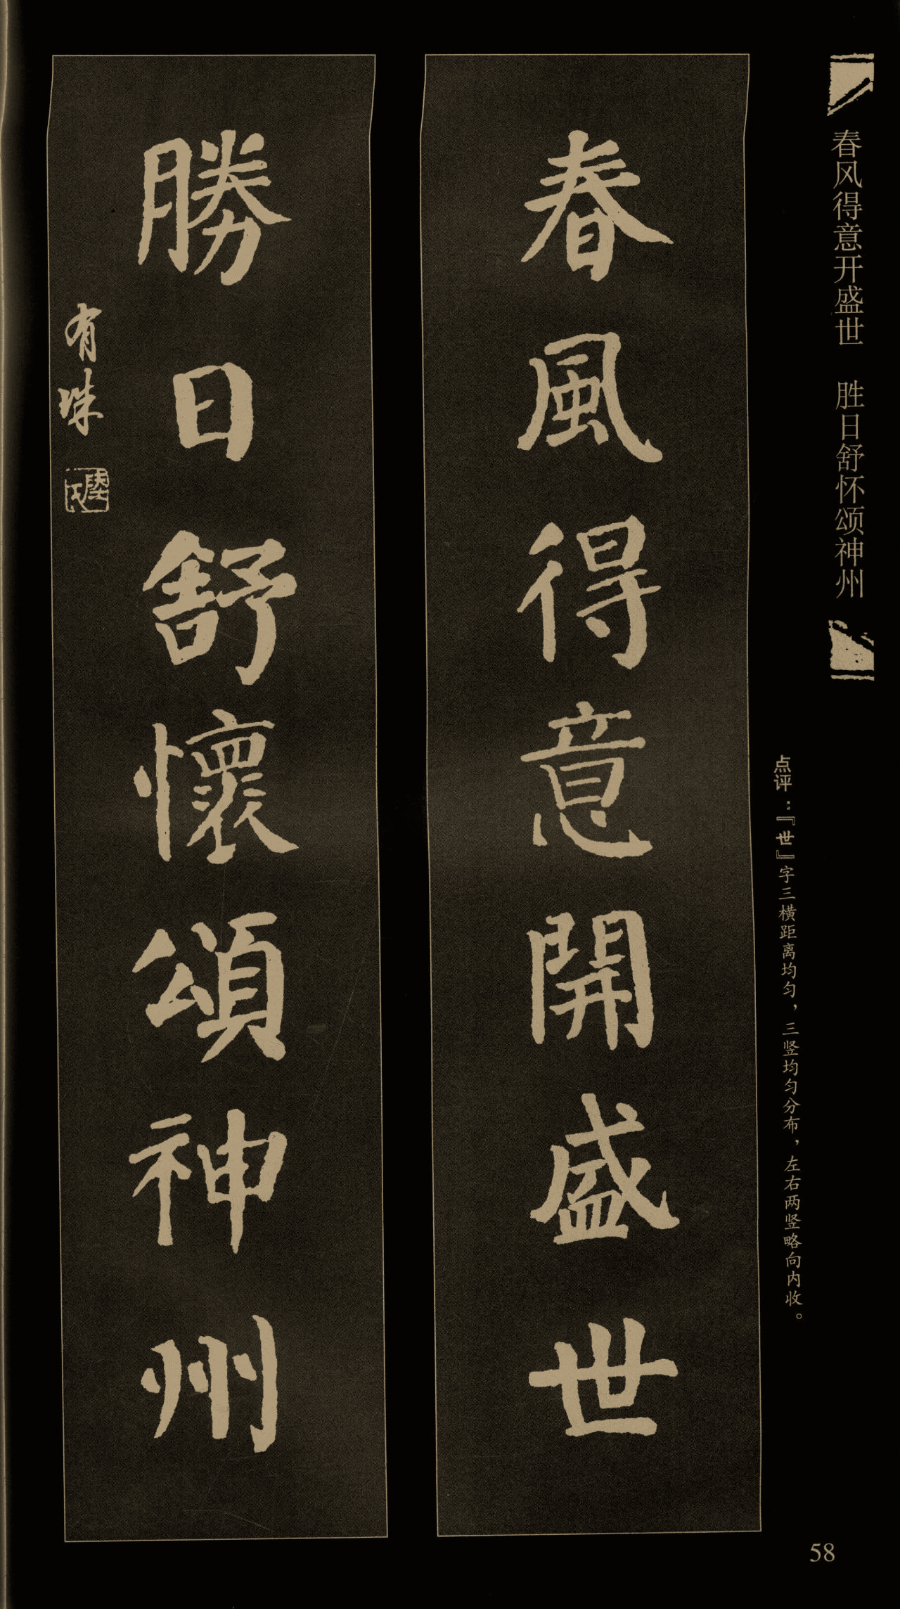 春风得意开盛世 胜日舒怀颂神州
点评：『世』字三横距离均匀，三竖均匀分布，左右两竖略向内收。
春風得意開盛世
勝日舒懷頌神州
有珠
58